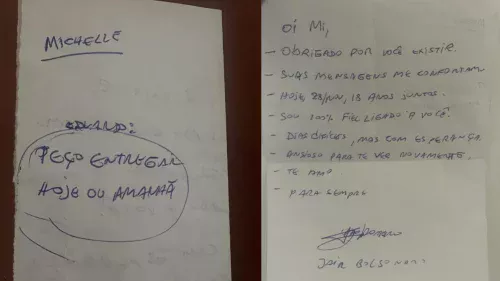 MICHELLE
PEÇO ENTREGAR
HOJE OU AMANHÃ
OI MI,
- OBRIGADO POR VOCÊ EXISTIR.
- SUAS MENSAGENS ME CONFORTAM
- HOJE, 28/NOV, 18 ANOS JUNTOS.
- SOU 100% FIEL, LIGADO A VOCÊ.
- DIAS DIFÍCEIS, MAS COM ESPERANÇA
- ANSIOSO PARA TE VER NOVAMENTE.
- TE AMO
- PARA SEMPRE
JAIR BOLSONARO